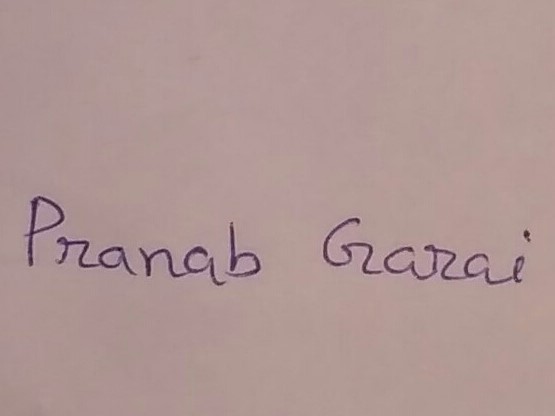 Pranab Garai